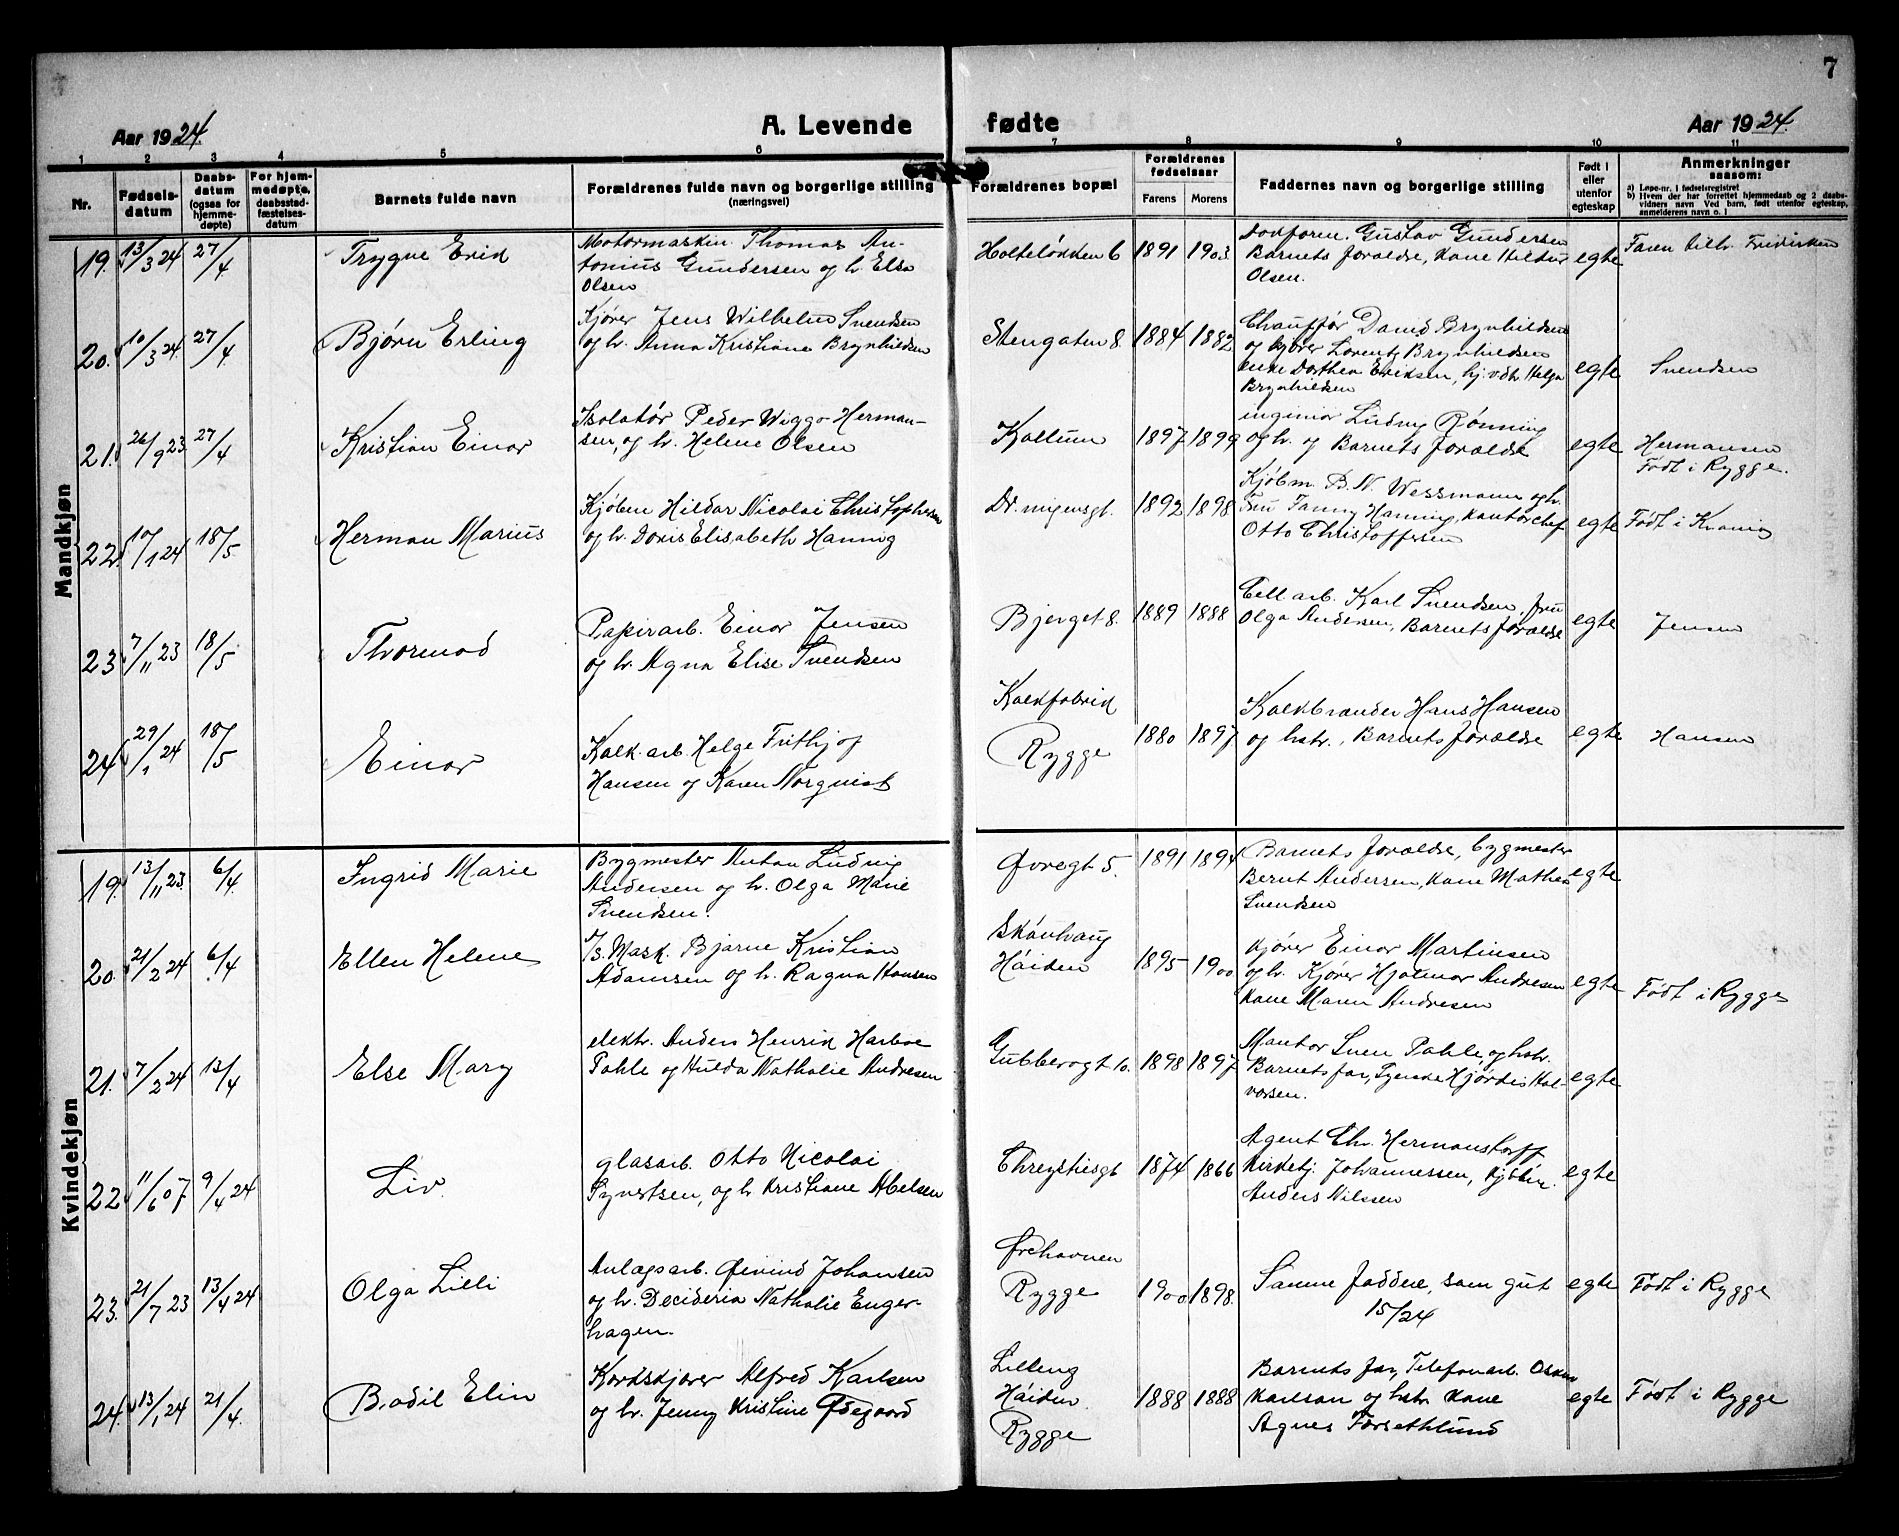 7
Aar 1924. A. Levende fødte Aar 1924.
1 2 3 4 5 6 7 8 9 10 11
Nr. Fødselsdatum Daabsdatum (ogsaa for hjemmedøpte) For hjemmedøpte, daabsstadfæstelsesdatum Barnets fulde navn Forældrenes fulde navn og borgerlige stilling (næringsvei) Forældrenes bopæl Forældrenes fødselsaar Farens Morens Faddernes navn og borgerlige stilling Født i eller utenfor egteskap Anmerkninger saasom:
a) Løpe-nr. i fødselsregistret
b) Hvem der har forrettet hjemmedaab og 2 daabsvidners navn Ved barn, født utenfor egteskap, anmelderens navn o. l
Mandkjøn
19. 13/3 24 27/4 Trygve Erik
Motormaskin. Thomas An-
tonius Gundersen og h. Elsa
Olsen
Holteløkken 6 1891 1903.
Gustav Gundersen
Barnets forældre, Kone Hildur
Olsen.
egte
Faren
20. 10/3 24. 27/4 Bjørn Erling
Kjører Jens Wilhelm Svendsen
og h. Anna Kristiane Brynhildsen
Stengaten 8. 1884 1882
Chauffør David Brynhildsen
og kjører Lorentz Brynhildsen
enke Dorthea Eriksen, hj. vdh Helga
Brynhildsen
egte Svendsen
21. 26/9 23. 27/4 Kristian Einar
Isolatør Peder Wiggo Herman-
sen, og h. Helene Olsen
Koltum 1897 1899
ingeniør Ludvig Rønning
og h. og Barnets forældre
egte Hermansen
Født i Rygge.
22. 10/1 24 18/5 Herman Marius
Kjøbm Hildar Nicolai Christophersen
og h. Doris Elisabeth Hannig
1892 1898
Kjøbm. B. N. Wessmann og h.
Fru Fanny Hanning, Kontorchef
Otto Christoffersen
egte Født i
23 7/11 23 18/5 Thormod
Papirarb. Einar Jensen
og h. Agna Elise Svendsen
Bjerget 8. 1889 1888
Cell arb. Karl Svendsen, fru
Olga Andersen, Barnets forældre
egte Jensen
24 29/1 24 18/5 Einar
Kalk. arb. Helge Frithjof
Hansen og Karen Norqvist
Kalkfabrik
Rygge
1880 1897
Kalkbrænder Hans Hansen
og hstr., Barnets forældre
egte Hansen
Kvindekjøn
19. 13/11 23. 6/4. Ingrid Marie
Bygmester Anton Ludvig
Andersen og h. Olga Marie
Svendsen.
Øvregt 5. 1891 1894
Barnets forældre, bygmester
Bernt Andersen, Kone Mathea
Svendsen
egte
20. 21/2 24 6/4 Ellen Helene
Mask. Bjarne Kristian
Adamsen og h. Ragna Hansen
Skånhaug
Håiden
1895 1900
Kjører Einar Martinsen
og h. Kjører Hjalmar Andresen
Kone Maren Andresen
egte Født i Rygge
21. 7/2 24 13/4 Else Mary
elektr. Anders Henrik Harboe
Pahle og Hulda Nathalie Andresen
Gubberogt 10. 1898 1897
Mantor Sven Pahle, og hstr.
Barnets far, Tjenske Hjørdis Hal-
vorsen.
egte
22 11/6 07 9/4 24 Liv.
glasarb. Otto Nicolai
Syvertsen, og h. Kristiane Abelsen
Chrystiesgt 1874 1866
Agent Chr. Hermanstorff
Kirketj. Johannessen, Kjøbm.
Anders Nilssen
egte
23. 21/7 23 13/4 24 Olga Lilli
Anlægsarb. Øivind Johansen
og h. Decideria Nathalie Enger-
hagen.
Ørehavnen
Rygge
1900 1898.
Samme faddere, som gut
15/24
egte Født i Rygge
24. 13/1 24 21/4. Bodil Elin
Kordskjører Alfred Karlsen
og h. Jenny Kristine Ødegaard
Lilleng
Håiden
Rygge
1888 1888
Barnets far, Telefonarb. Oskar
Karlson og hstr. Kone
Agnes Forsethlund
egte Født i Rygge